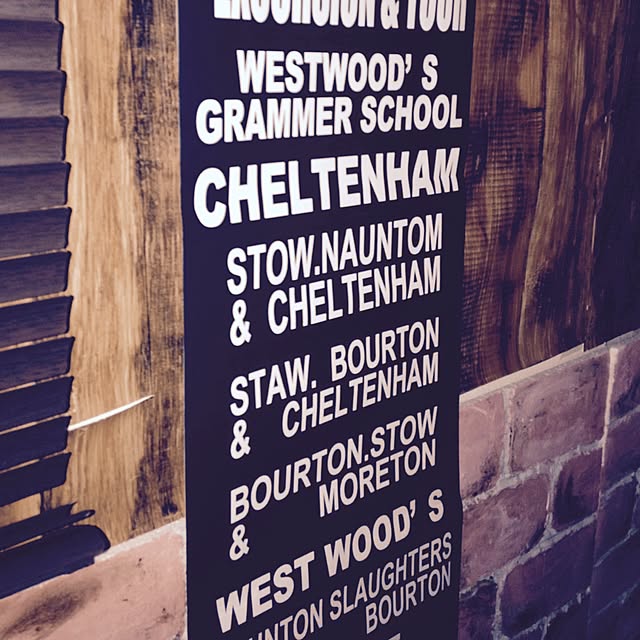 EXCURSION & TOUR
WESTWOOD' S
GRAMMER SCHOOL
CHELTENHAM
STOW.NAUNTOM
& CHELTENHAM
STAW. BOURTON
& CHELTENHAM
BOURTON.STOW
& MORETON
WEST WOOD' S
UNTON SLAUGHTERS
BOURTON